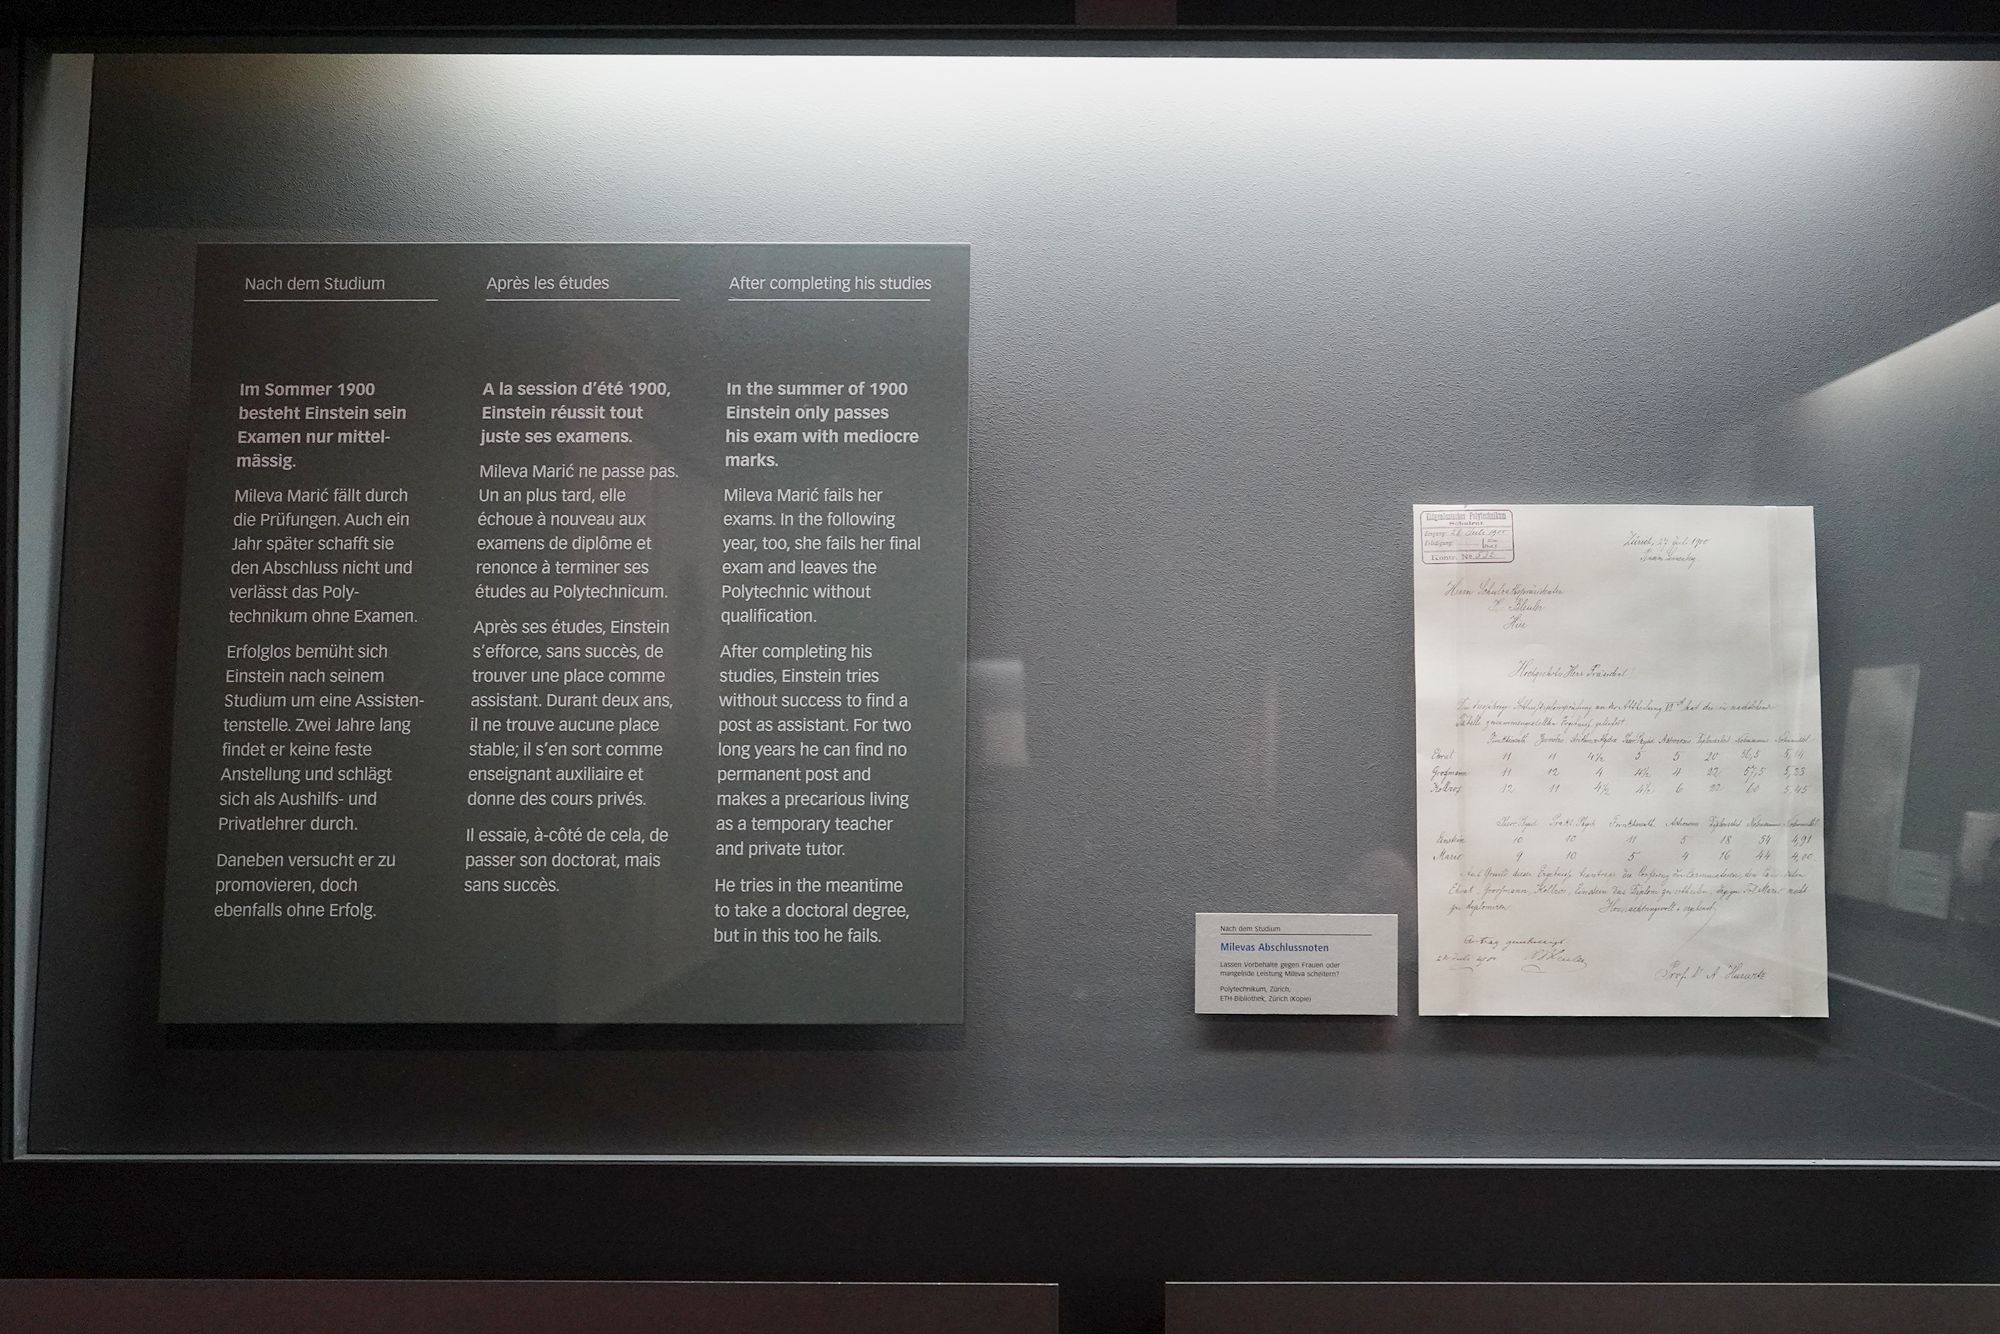 Nach dem Studium
Im Sommer 1900
besteht Einstein sein
Examen nur mittel-
mässig.
Mileva Marić fällt durch
die Prüfungen. Auch ein
Jahr später schafft sie
den Abschluss nicht und
verlässt das Poly-
technikum ohne Examen.
Erfolglos bemüht sich
Einstein nach seinem
Studium um eine Assisten-
tenstelle. Zwei Jahre lang
findet er keine feste
Anstellung und schlägt
sich als Aushilfs- und
Privatlehrer durch.
Daneben versucht er zu
promovieren, doch
ebenfalls ohne Erfolg.
Après les études
A la session d'été 1900,
Einstein réussit tout
juste ses examens.
Mileva Marić ne passe pas.
Un an plus tard, elle
échoue à nouveau aux
examens de diplôme et
renonce à terminer ses
études au Polytechnicum.
Après ses études, Einstein
s'efforce, sans succès, de
trouver une place comme
assistant. Durant deux ans,
il ne trouve aucune place
stable; il s'en sort comme
enseignant auxiliaire et
donne des cours privés.
Il essaie, à-côté de cela, de
passer son doctorat, mais
sans succès.
After completing his studies
In the summer of 1900
Einstein only passes
his exam with mediocre
marks.
Mileva Marić fails her
exams. In the following
year, too, she fails her final
exam and leaves the
Polytechnic without
qualification.
After completing his
studies, Einstein tries
without success to find a
post as assistant. For two
long years he can find no
permanent post and
makes a precarious living
as a temporary teacher
and private tutor.
He tries in the meantime
to take a doctoral degree,
but in this too he fails.
Nach dem Studium
Milevas Abschlussnoten
Lassen Vorbehalte gegen Frauen oder
mangelnde Leistung Mileva scheitern?
Polytechnikum, Zürich,
ETH-Bibliothek, Zürich (Kopie)
Eidgenössisches Polytechnikum
Schulrat
Kontr. Nr.
Zürich, 27 Juli 1900
Herrn Schulratspräsidenten
H. Bleuler
Hier
Hochgeehrter Herr Präsident!
Ehrat 11 11 4½ 5 5 20 56,5 5,14
Grossmann 11 12 4 4½ 4 22 57,5 5,23
Kollros 12 11 4½ 4½ 6 22 60 5,45
Einstein 10 10 11 5 18 54 4,91
Maric 9 10 5 4 16 44 4,00
Ehrat, Grossmann, Kollros, Einstein das Diplom zu erteilen, dagegen Frl. Maric nicht
zu diplomieren.
Antrag genehmigt.
Prof. Dr A. Hurwitz